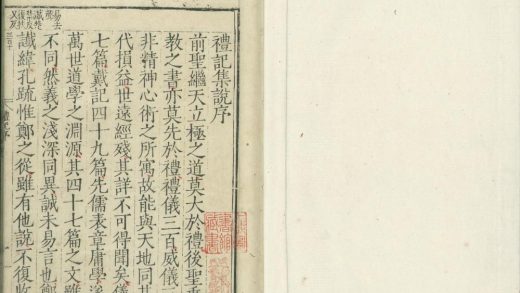 禮記集說序
前聖繼天立極之道莫大於禮後聖垂
教之書亦莫先於禮禮儀三百威儀三
非精神心術之所寓故能與天地同其
代損益世遠經殘其詳不可得聞矣儀
七篇戴記四十九篇先儒表章庸學遂
萬世道學之淵源其四十七篇之文雖
不同然義之淺深同異誠未易言也鄭
讖緯孔疏惟鄭之從雖有他說不復收